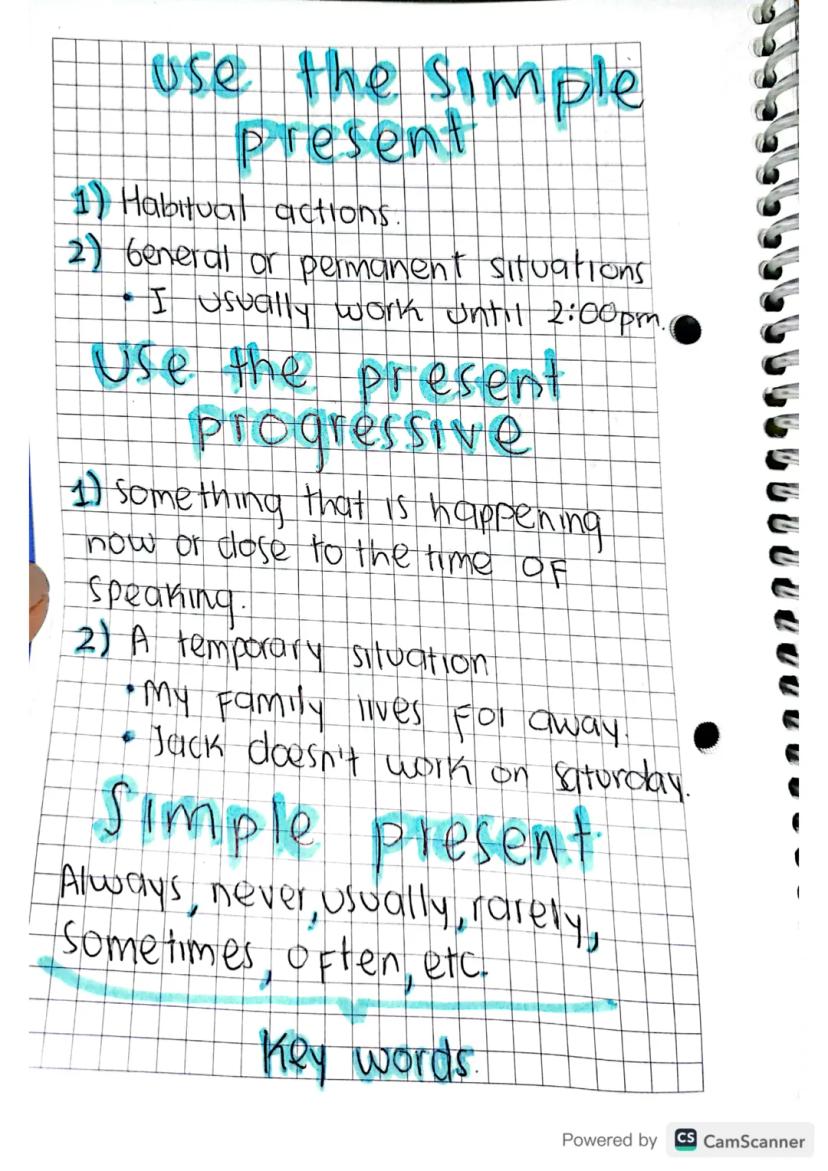 use the simple
present
1) Habitual actions.
2) General or permanent situations
• I usually work until 2:00pm.
Use the present
progressive
1) something that is happening
now or close to the time OF
speaking.
2) A temporary situation
• My family lives For away.
• Jack doesn't work on saturday.
Simple present
Always, never, usually, rarely,
sometimes, often, etc.
Key words.
Powered by CS CamScanner